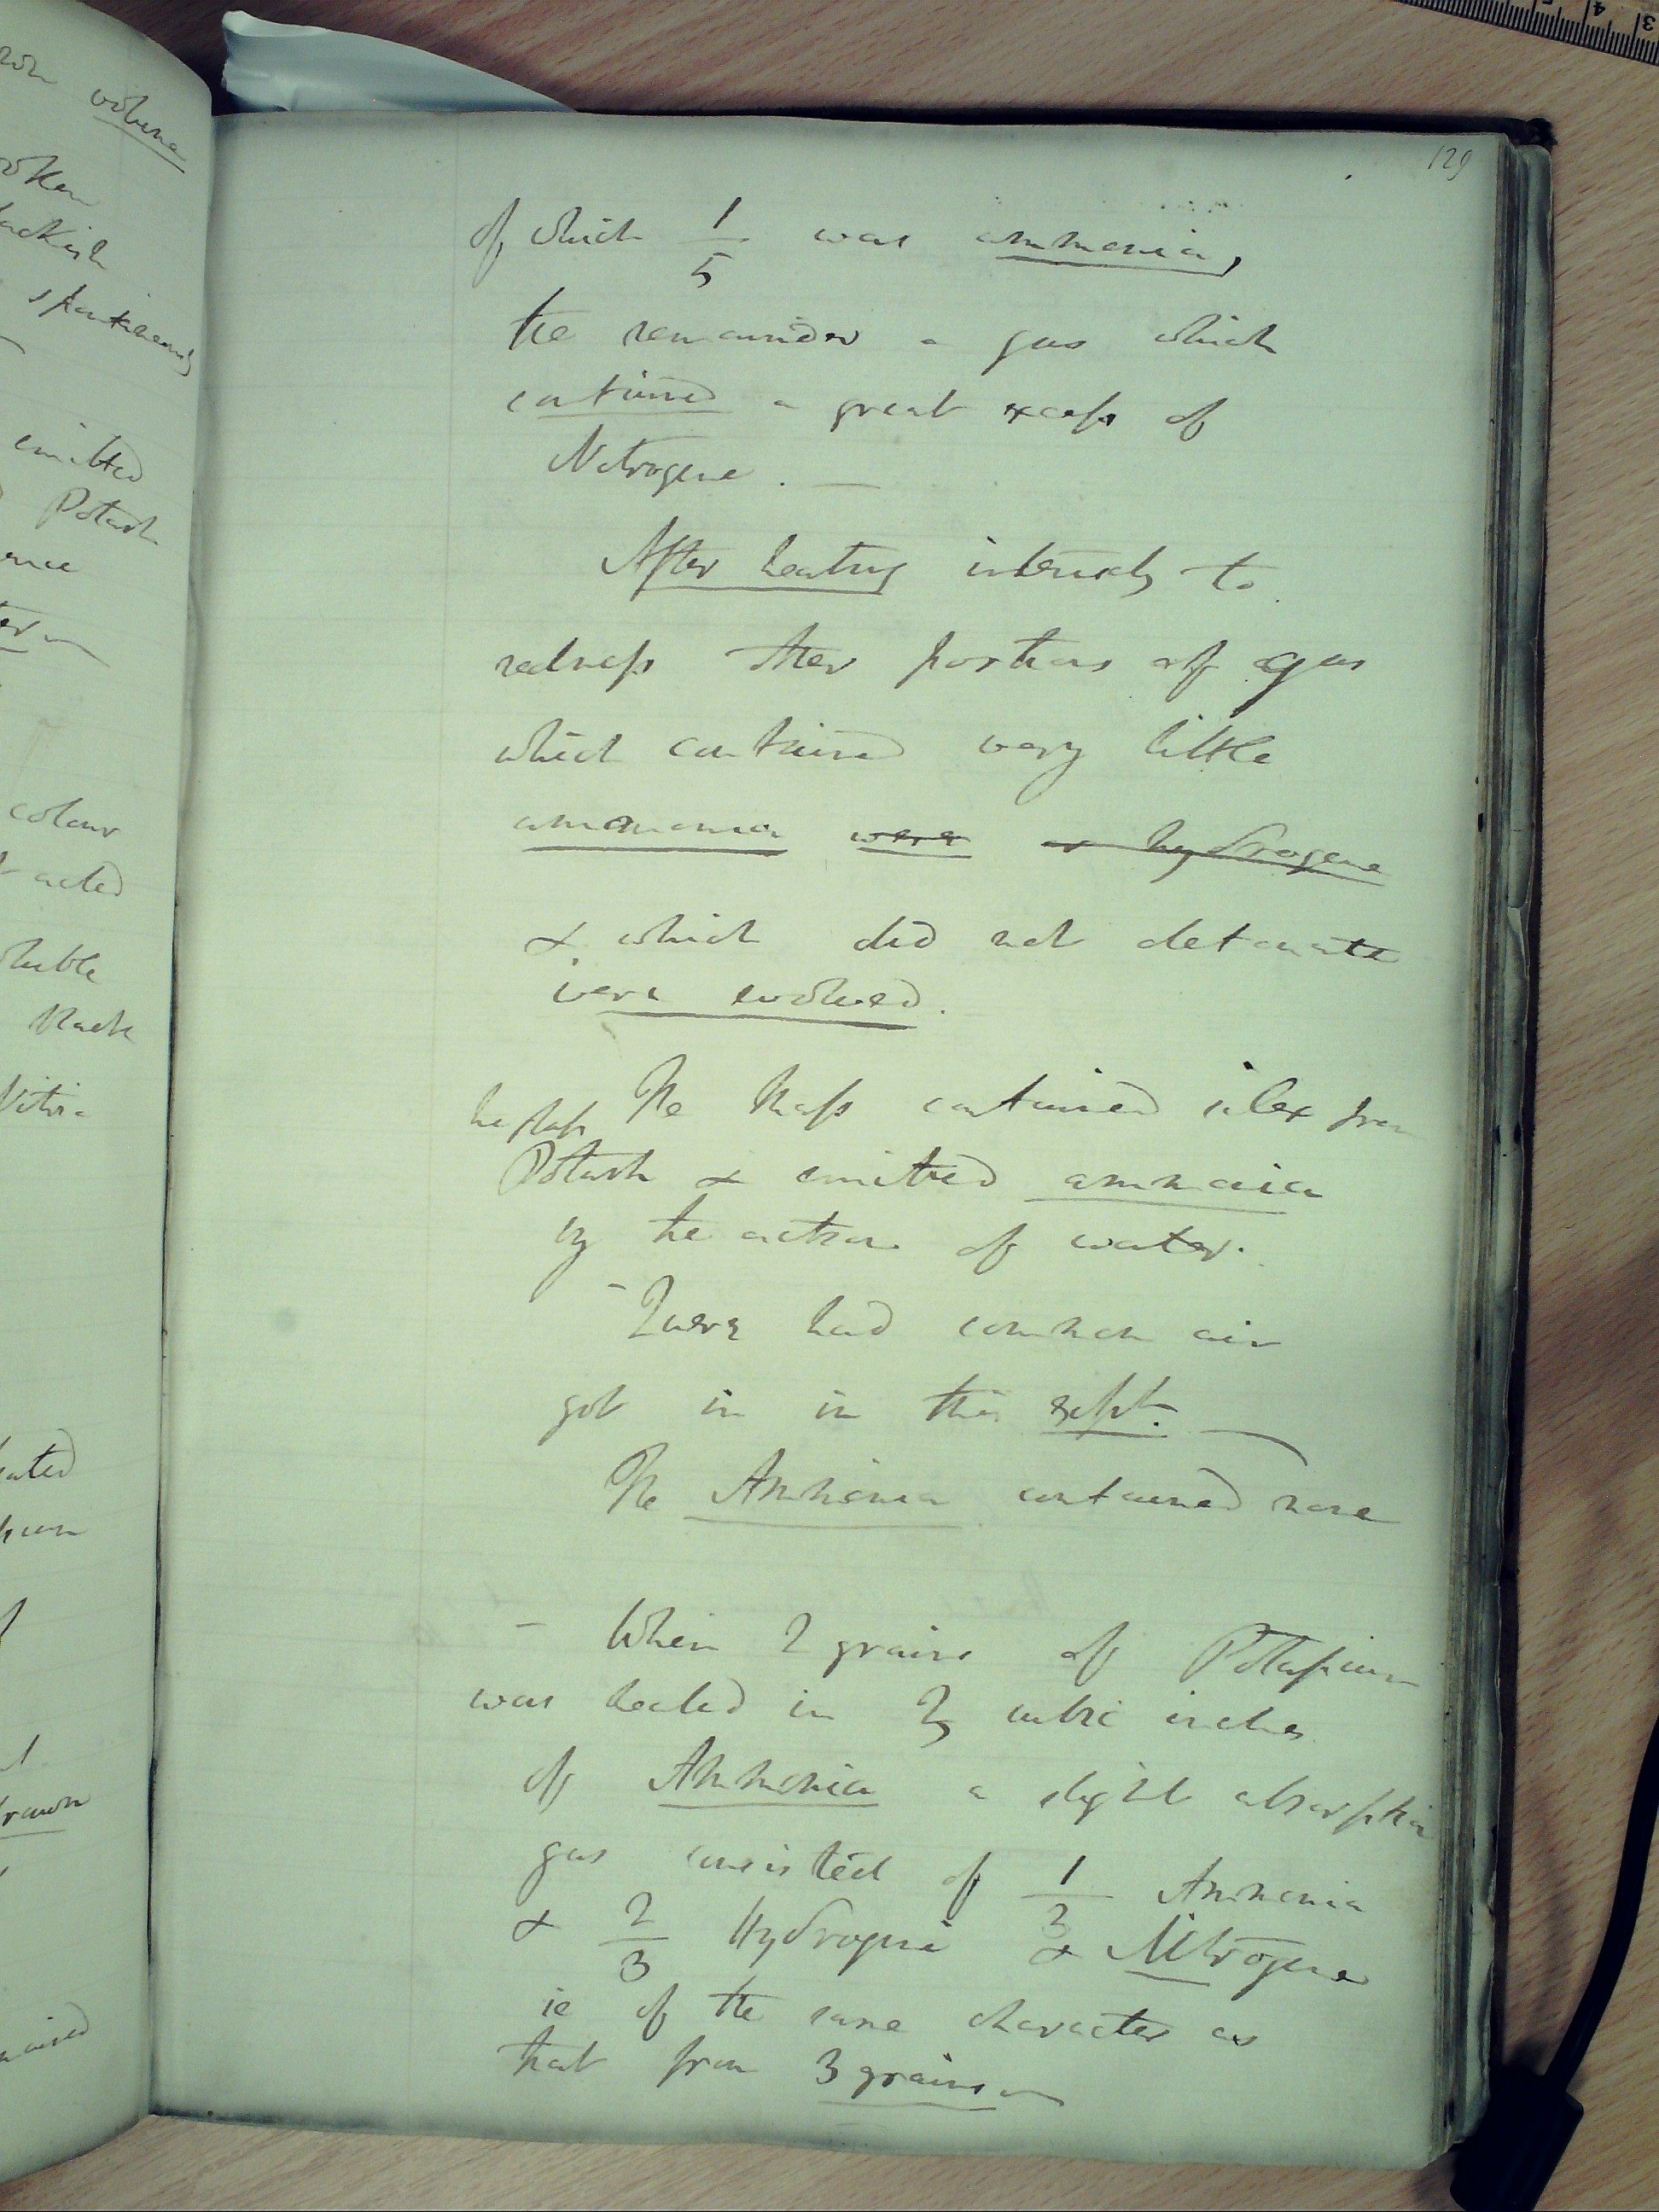 ron volume
oken
lackish
spontaneously
emitted
Potash
colour
acted
oluble
black
Nitro
eated
drawn
129
of which 1/5 was ammonia,
the remainder a gas which
contained a great excess of
Nitrogene. —
After heating intensely to
redness other portions of gas
which contained very little
ammonia were or hydrogene
& which did not detonate
were evolved.
The Mass contained silex from
Potash & emitted ammonia
by the action of water.
- Quere had common air
got in in this expt. —
The Ammonia contained none
- When 2 grains of Potassium
was heated in cubic inches
of Ammonia a slight absorption
gas consisted of 1/3 Ammonia
& 2/3 Hydrogene & Nitrogene
ie of the same character as
that from 3 grains —